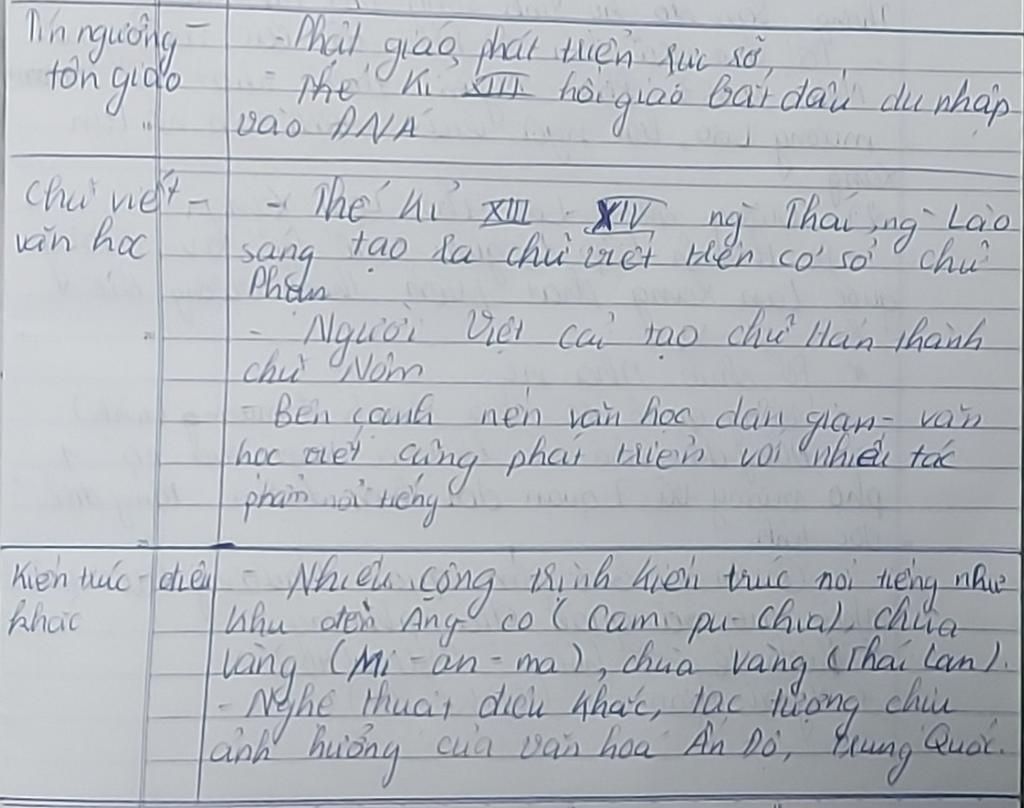 Tín ngưỡng – - Phật giáo phát triển rực rỡ,
tôn giáo - Thế kỉ XIII hồi giáo bắt đầu du nhập
vào ĐNA
Chữ viết – - Thế kỉ XIII - XIV ng` Thái, ng` Lào
văn học sáng tạo ra chữ viết trên cơ sở chữ
Phạn
- Người Việt cải tạo chữ Hán thành
chữ Nôm
- Bên cạnh nền văn học dân gian - văn
học viết cũng phát triển với nhiều tác
phẩm nổi tiếng
Kiến trúc – điêu - Nhiều công trình kiến trúc nổi tiếng như
khắc khu đền Ăng co (Cam pu-chia), chùa
vàng (Mi-an-ma), chùa vàng (Thái Lan).
- Nghệ thuật điêu khắc, tạc tượng chịu
ảnh hưởng của văn hóa Ấn Độ, Trung Quốc.